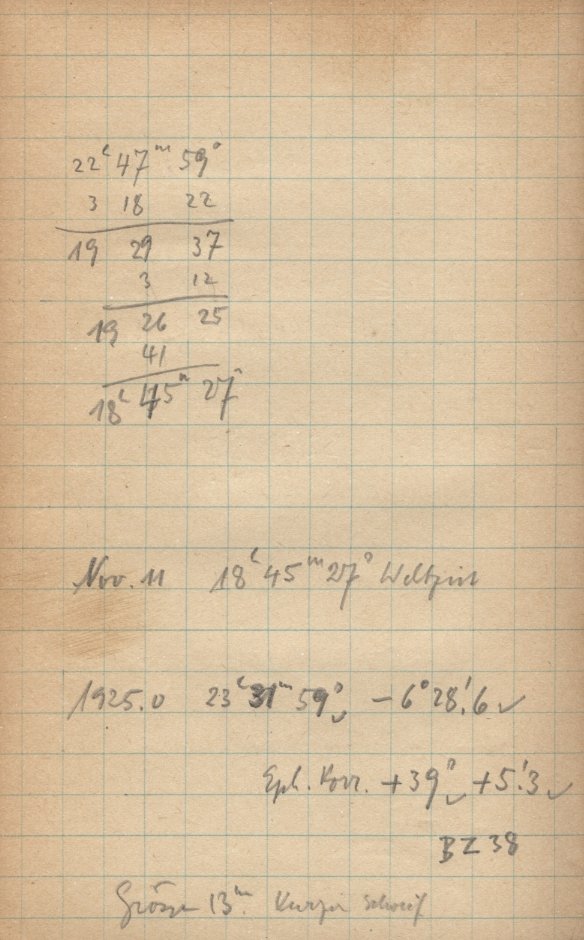 22ʰ 47ᵐ 59ˢ
3 18 22
19 29 37
3 12
19 26 25
41
18ʰ 45ᵐ 27ˢ
Nov. 11 18ʰ 45ᵐ 27ˢ Weltzeit
1925.0 23ʰ 31ᵐ 59ˢ ✓ −6° 28.'6 ✓
Eph. Korr. +39ˢ ✓ +5.'3 ✓
BZ 38
Grösse 13ᵐ. Kurzer Schweif